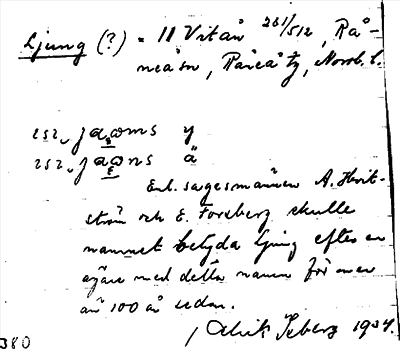 Ljung (?) = 11 Vitån 261/512, Rå-
neå sn, Råneå tg, Norrb. l.
y
ä
Enl. sagesmännen A. Hvit-
ström och E. Forsberg skulle
namnet betyda ljung efter en
ägare med detta namn för mer
än 100 år sedan.
1934.
380